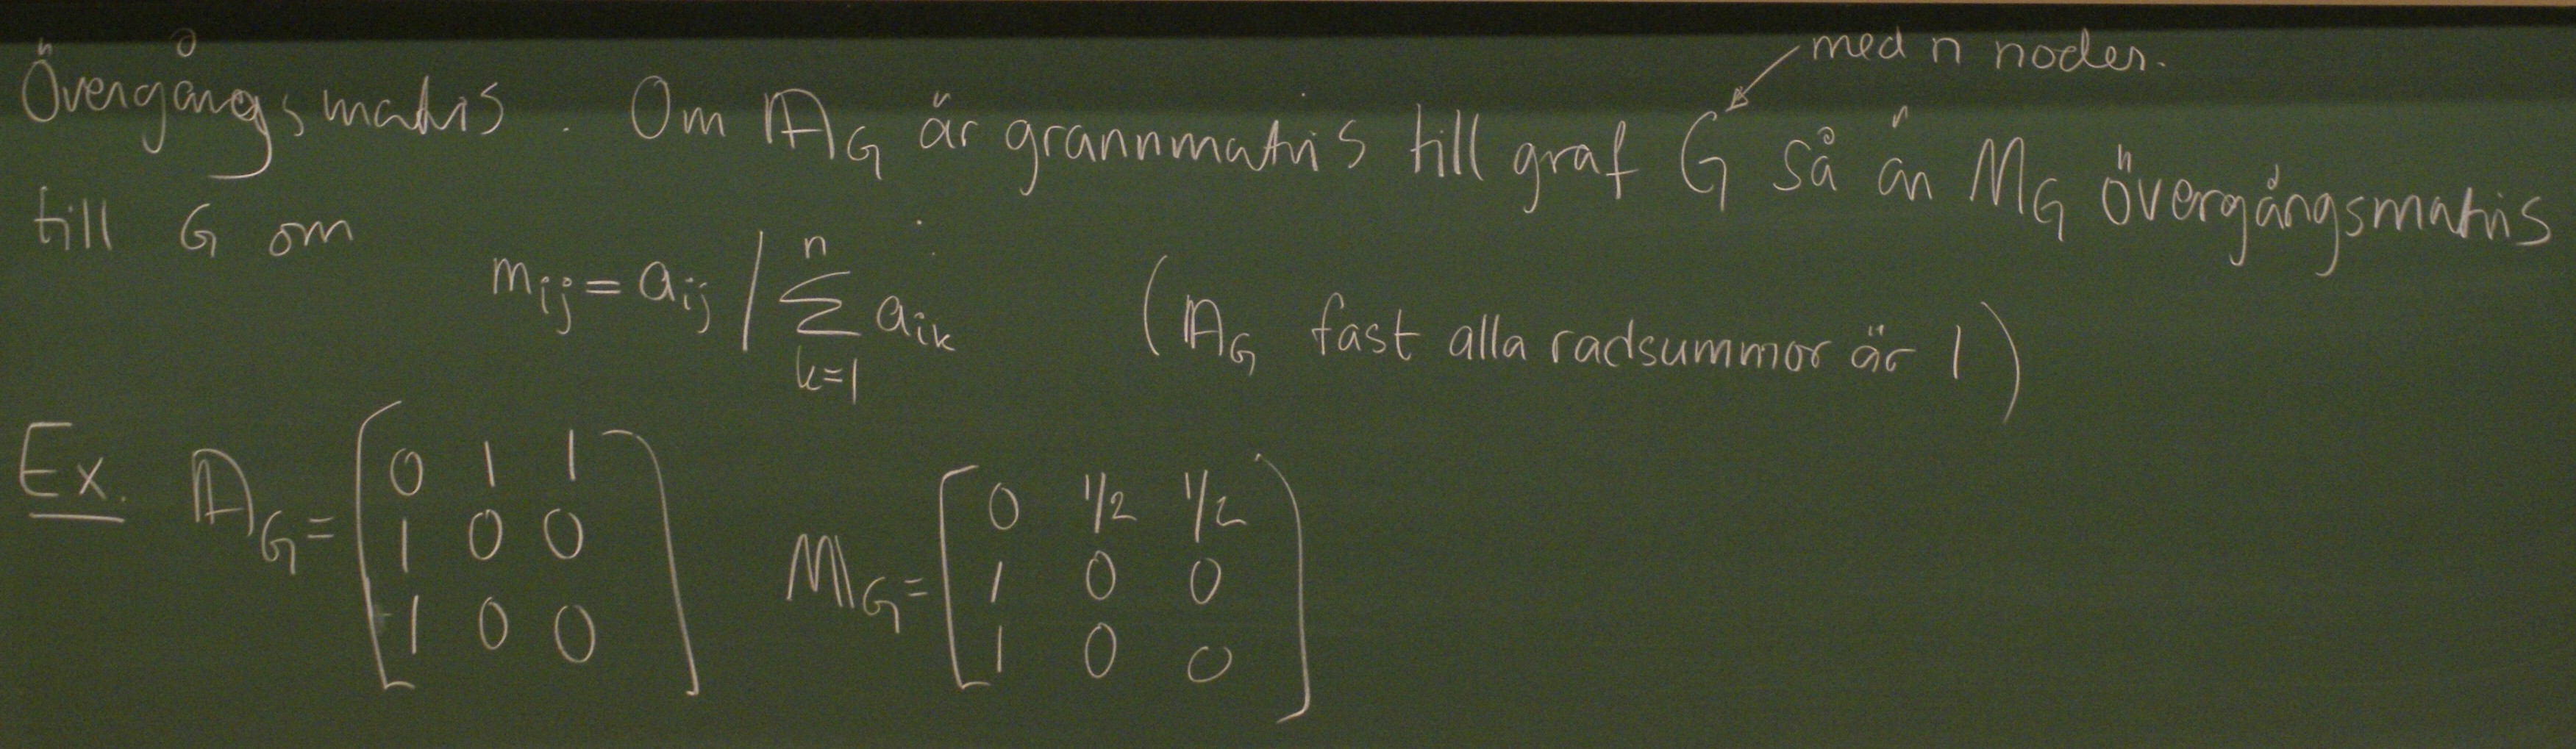 med n noder.
Övergångsmatris. Om A_G är grannmatris till graf G så är M_G övergångsmatris
till G om
m_ij = a_ij / ∑_{k=1}^{n} a_ik (A_G fast alla radsummor är 1)
Ex. A_G = [0 1 1 M_G = [0 1/2 1/2
1 0 0 1 0 0
1 0 0] 1 0 0]